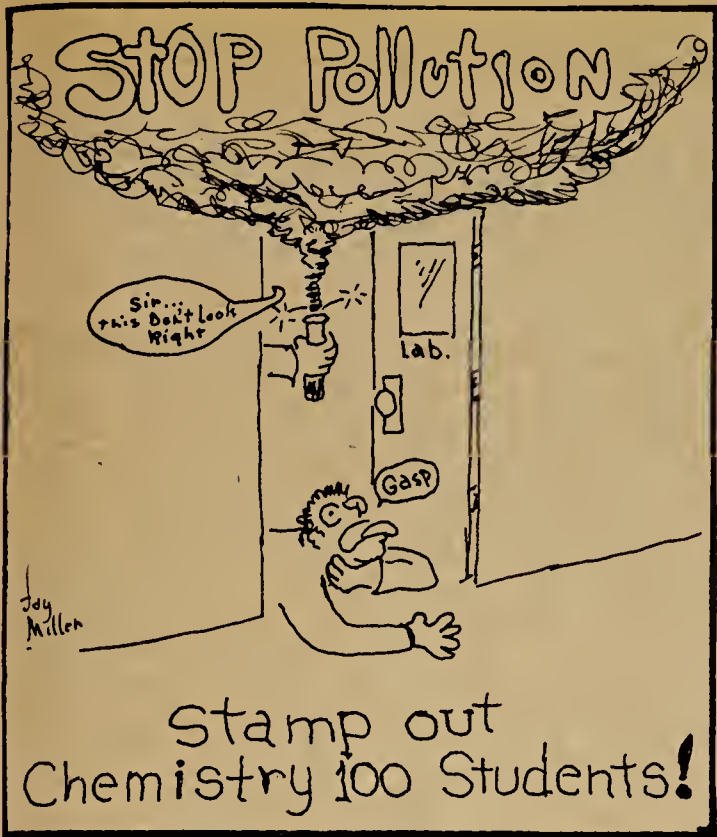 StOP Pollution
Sir...
this Don't Look
Right
Lab.
Gasp
Jay
Miller
Stamp out
Chemistry 100 Students!